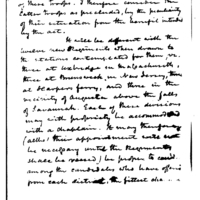 of these Troops. I therefore consider the
latter Troops as precluded, by the peculiarity
of their situation from the benefit intended
by the act.
It will be different with the
twelve new Regiments when drawn to
the stations contemplated for them, viz.
three at Uxbridge in Massachusetts,
three at Brunswick in New Jersey, three
at Harpers ferry, and three in the
vicinity of Augusta above the falls
of Savannah. Each of these divisions
may with propriety be accommodated
with a chaplain. It may therefore
(altho' their appointment will not
be necessary until the Regiments
shall be raised) be proper to
among the candidates who have offered
from each district, the fittest